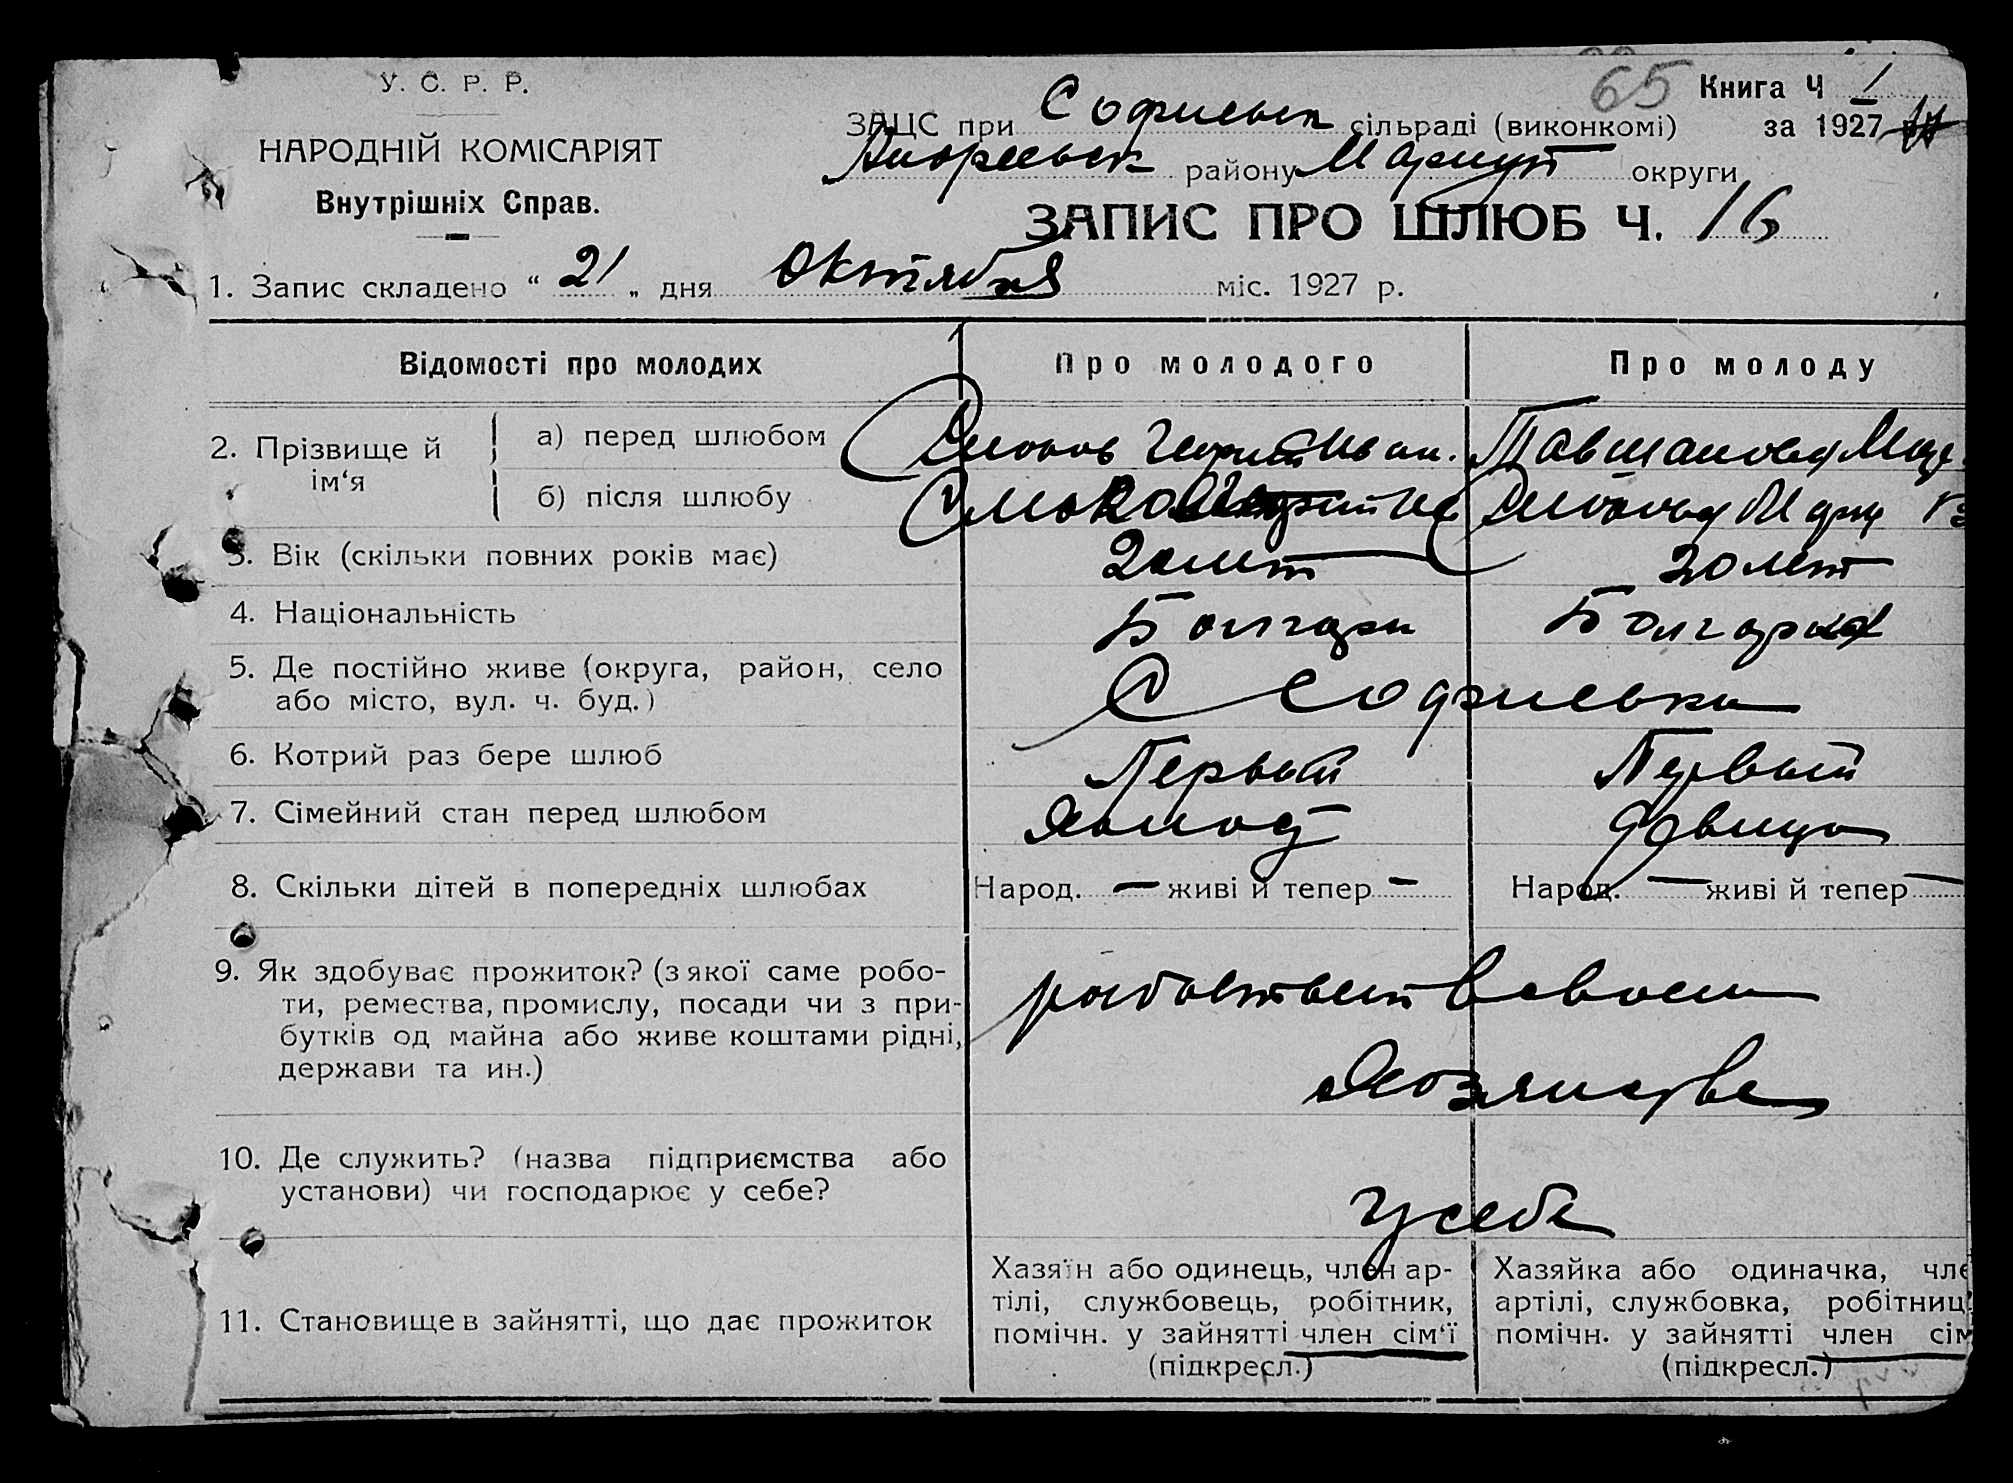 У. С. Р. Р.
НАРОДНІЙ КОМІСАРІЯТ
Внутрішніх Справ.
65
Книга Ч 1
ЗАЦС при Софиевск сільраді (виконкомі) за 1927
Андреевск району Мариуп округи
ЗАПИС ПРО ШЛЮБ Ч. 16
1. Запис складено “ 21 „ дня Октября міс. 1927 р.
Відомості про молодих
Про молодого
Про молоду
2. Прізвище й ім‘я
а) перед шлюбом
Иван.
Тавшанова
б) після шлюбу
3. Вік (скільки повних років має)
20 лет
20 лет
4. Національність
Болгари
Болгарка
5. Де постійно живе (округа, район, село
або місто, вул. ч. буд.)
С Софиевка
6. Котрий раз бере шлюб
Первый
Первый
7. Сімейний стан перед шлюбом
Холост
девица
8. Скільки дітей в попередніх шлюбах
Народ. — живі й тепер —
Народ. — живі й тепер —
9. Як здобуває прожиток? (з якої саме робо-
ти, ремества, промислу, посади чи з при-
бутків од майна або живе коштами рідні,
держави та ин.)
в своем
Хозяистве
10. Де служить? (назва підприємства або
установи) чи господарює у себе?
У себе
11. Становище в зайнятті, що дає прожиток
Хазяїн або одинець, член ар-
тілі, службовець, робітник,
помічн. у зайнятті член сім‘ї
(підкресл.)
Хазяйка або одиначка, чле
артілі, службовка, робітниц
помічн. у зайнятті член сім
(підкресл.)